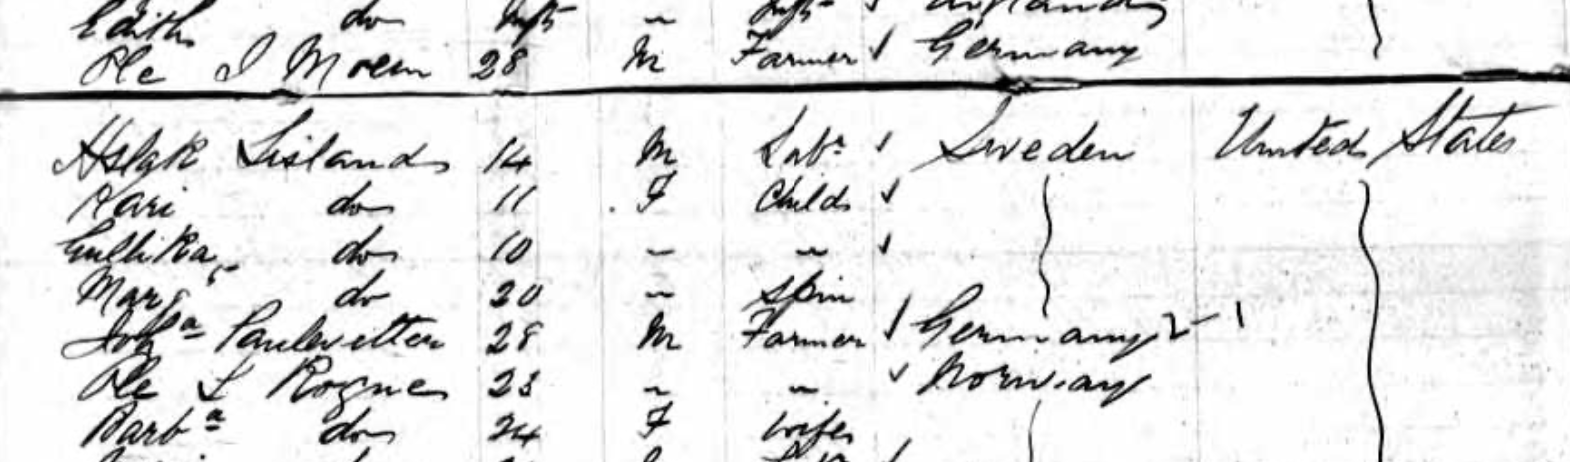 Edith do Inft " Inft
Ole I Moen 28 M Farmer Germany
Aslak Lisland 14 M Labr Sweden United States
Kari do 11 F Child
Gullika do 10 " "
Margt do 20 " Spin
Joha 28 M Farmer Germany
Ole L Rogne 23 " " Norway
Barba do 24 F Wife